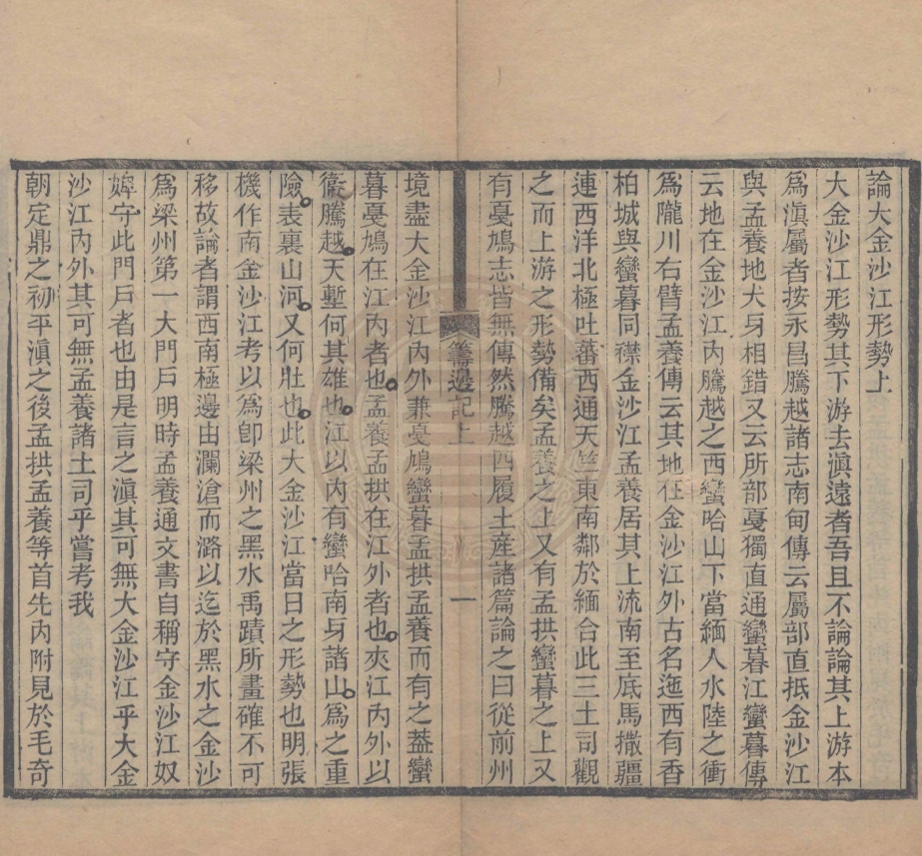 論大金沙江形勢上
大金沙江形勢其下游去滇遠者吾且不論論其上游本
爲滇屬者按永昌騰越諸志南甸傳云屬部直抵金沙江
與孟養地犬身相錯又云所部戞獨直通蠻暮江蠻暮傳
云地在金沙江內騰越之西蠻哈山下當緬人水陸之衝
爲隴川右臂孟養傳云其地在金沙江外古名迤西有香
柏城與蠻暮同襟金沙江孟養居其上流南至底馬撒疆
連西洋北極吐蕃西通天竺東南鄰於緬合此三土司觀
之而上游之形勢備矣孟養之上又有孟拱蠻暮之上又
有戞鳩志皆無傳然騰越西履土産諸篇論之曰從前州
籌邊記上
一
境盡大金沙江內外兼戞鳩蠻暮孟拱孟養而有之葢蠻
暮戞鳩在江內者也孟養孟拱在江外者也夾江內外以
衞騰越天塹何其雄也江以內有蠻哈南身諸山爲之重
險表裏山河又何壯也此大金沙江當日之形勢也明張
機作南金沙江考以爲卽梁州之黑水禹蹟所畫確不可
移故論者謂西南極邊由瀾滄而潞以迄於黑水之金沙
爲梁州第一大門戸明時孟養通文書自稱守金沙江奴
婢守此門戸者也由是言之滇其可無大金沙江乎大金
沙江內外其可無孟養諸土司乎嘗考我
朝定鼎之初平滇之後孟拱孟養等首先內附見於毛奇